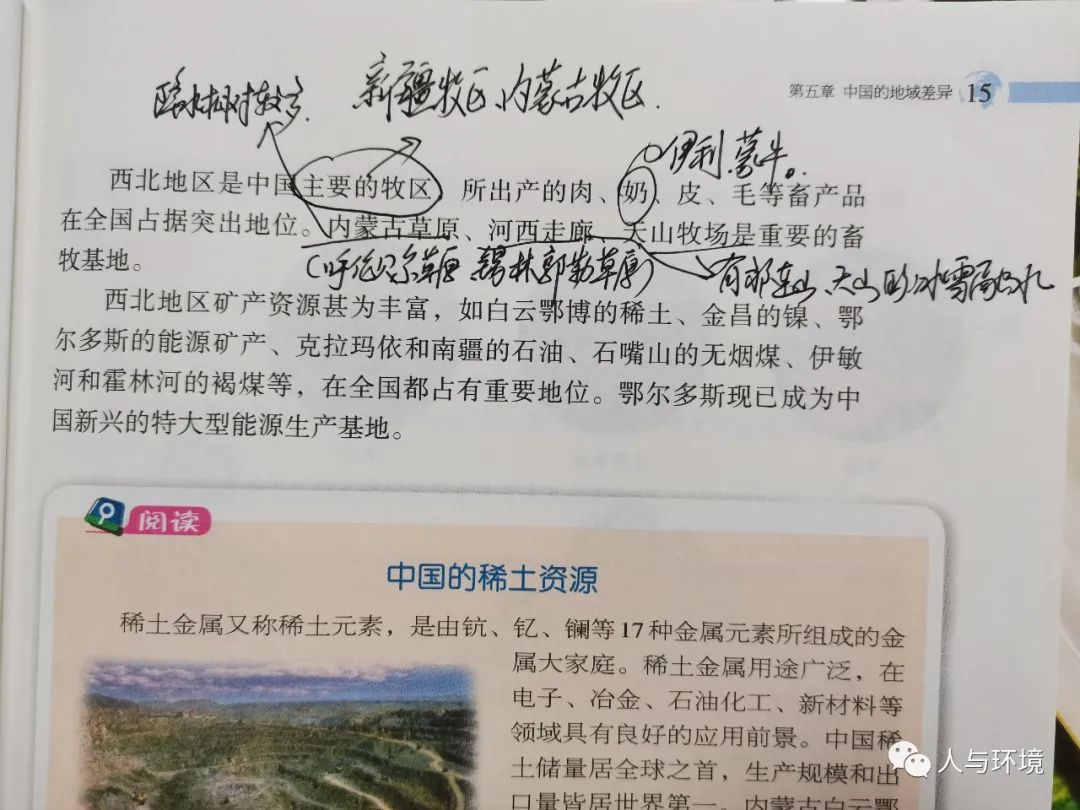 第五章 中国的地域差异 15
降水相对较多. 新疆牧区、内蒙古牧区.
伊利.蒙牛。
西北地区是中国主要的牧区 所出产的肉、奶、皮、毛等畜产品
在全国占据突出地位。内蒙古草原、河西走廊、天山牧场是重要的畜
牧基地。
(呼伦贝尔草原 锡林郭勒草原) 有祁连山、天山的冰雪融水
西北地区矿产资源甚为丰富，如白云鄂博的稀土、金昌的镍、鄂
尔多斯的能源矿产、克拉玛依和南疆的石油、石嘴山的无烟煤、伊敏
河和霍林河的褐煤等，在全国都占有重要地位。鄂尔多斯现已成为中
国新兴的特大型能源生产基地。
阅读
中国的稀土资源
稀土金属又称稀土元素，是由钪、钇、镧等17种金属元素所组成的金
属大家庭。稀土金属用途广泛，在
电子、冶金、石油化工、新材料等
领域具有良好的应用前景。中国稀
土储量居全球之首，生产规模和出
口量皆居世界第一。内蒙古白云鄂
人与环境